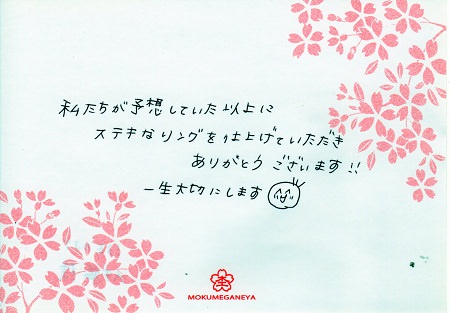 私たちが予想していた以上に
ステキなリングを仕上げていただき
ありがとうございます!!
一生大切にします
MOKUMEGANEYA